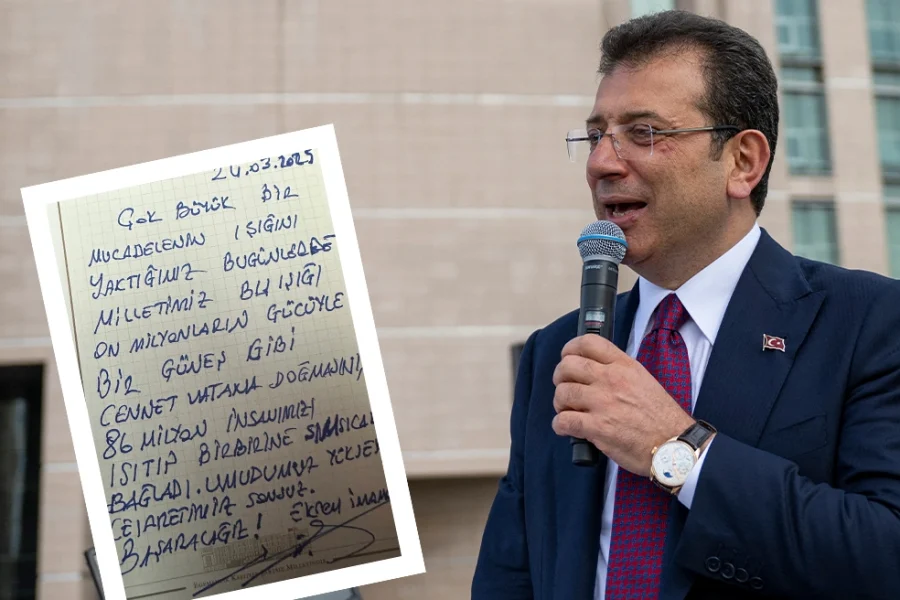 24.03.2025
ÇOK BÜYÜK BİR
MÜCADELENİN IŞIĞINI
YAKTIĞIMIZ BUGÜNLERDE
MİLLETİMİZ BU IŞIĞI
ON MİLYONLARIN GÜCÜYLE
BİR GÜNEŞ GİBİ
CENNET VATANA DOĞMASINI,
86 MİLYON İNSANIMIZI
ISITIP BİRBİRİNE SIMSICAK
BAĞLADI. UMUDUMUZ YÜKSEK
CESARETİMİZ SONSUZ.
BAŞARACAĞIZ! EKREM İMAM